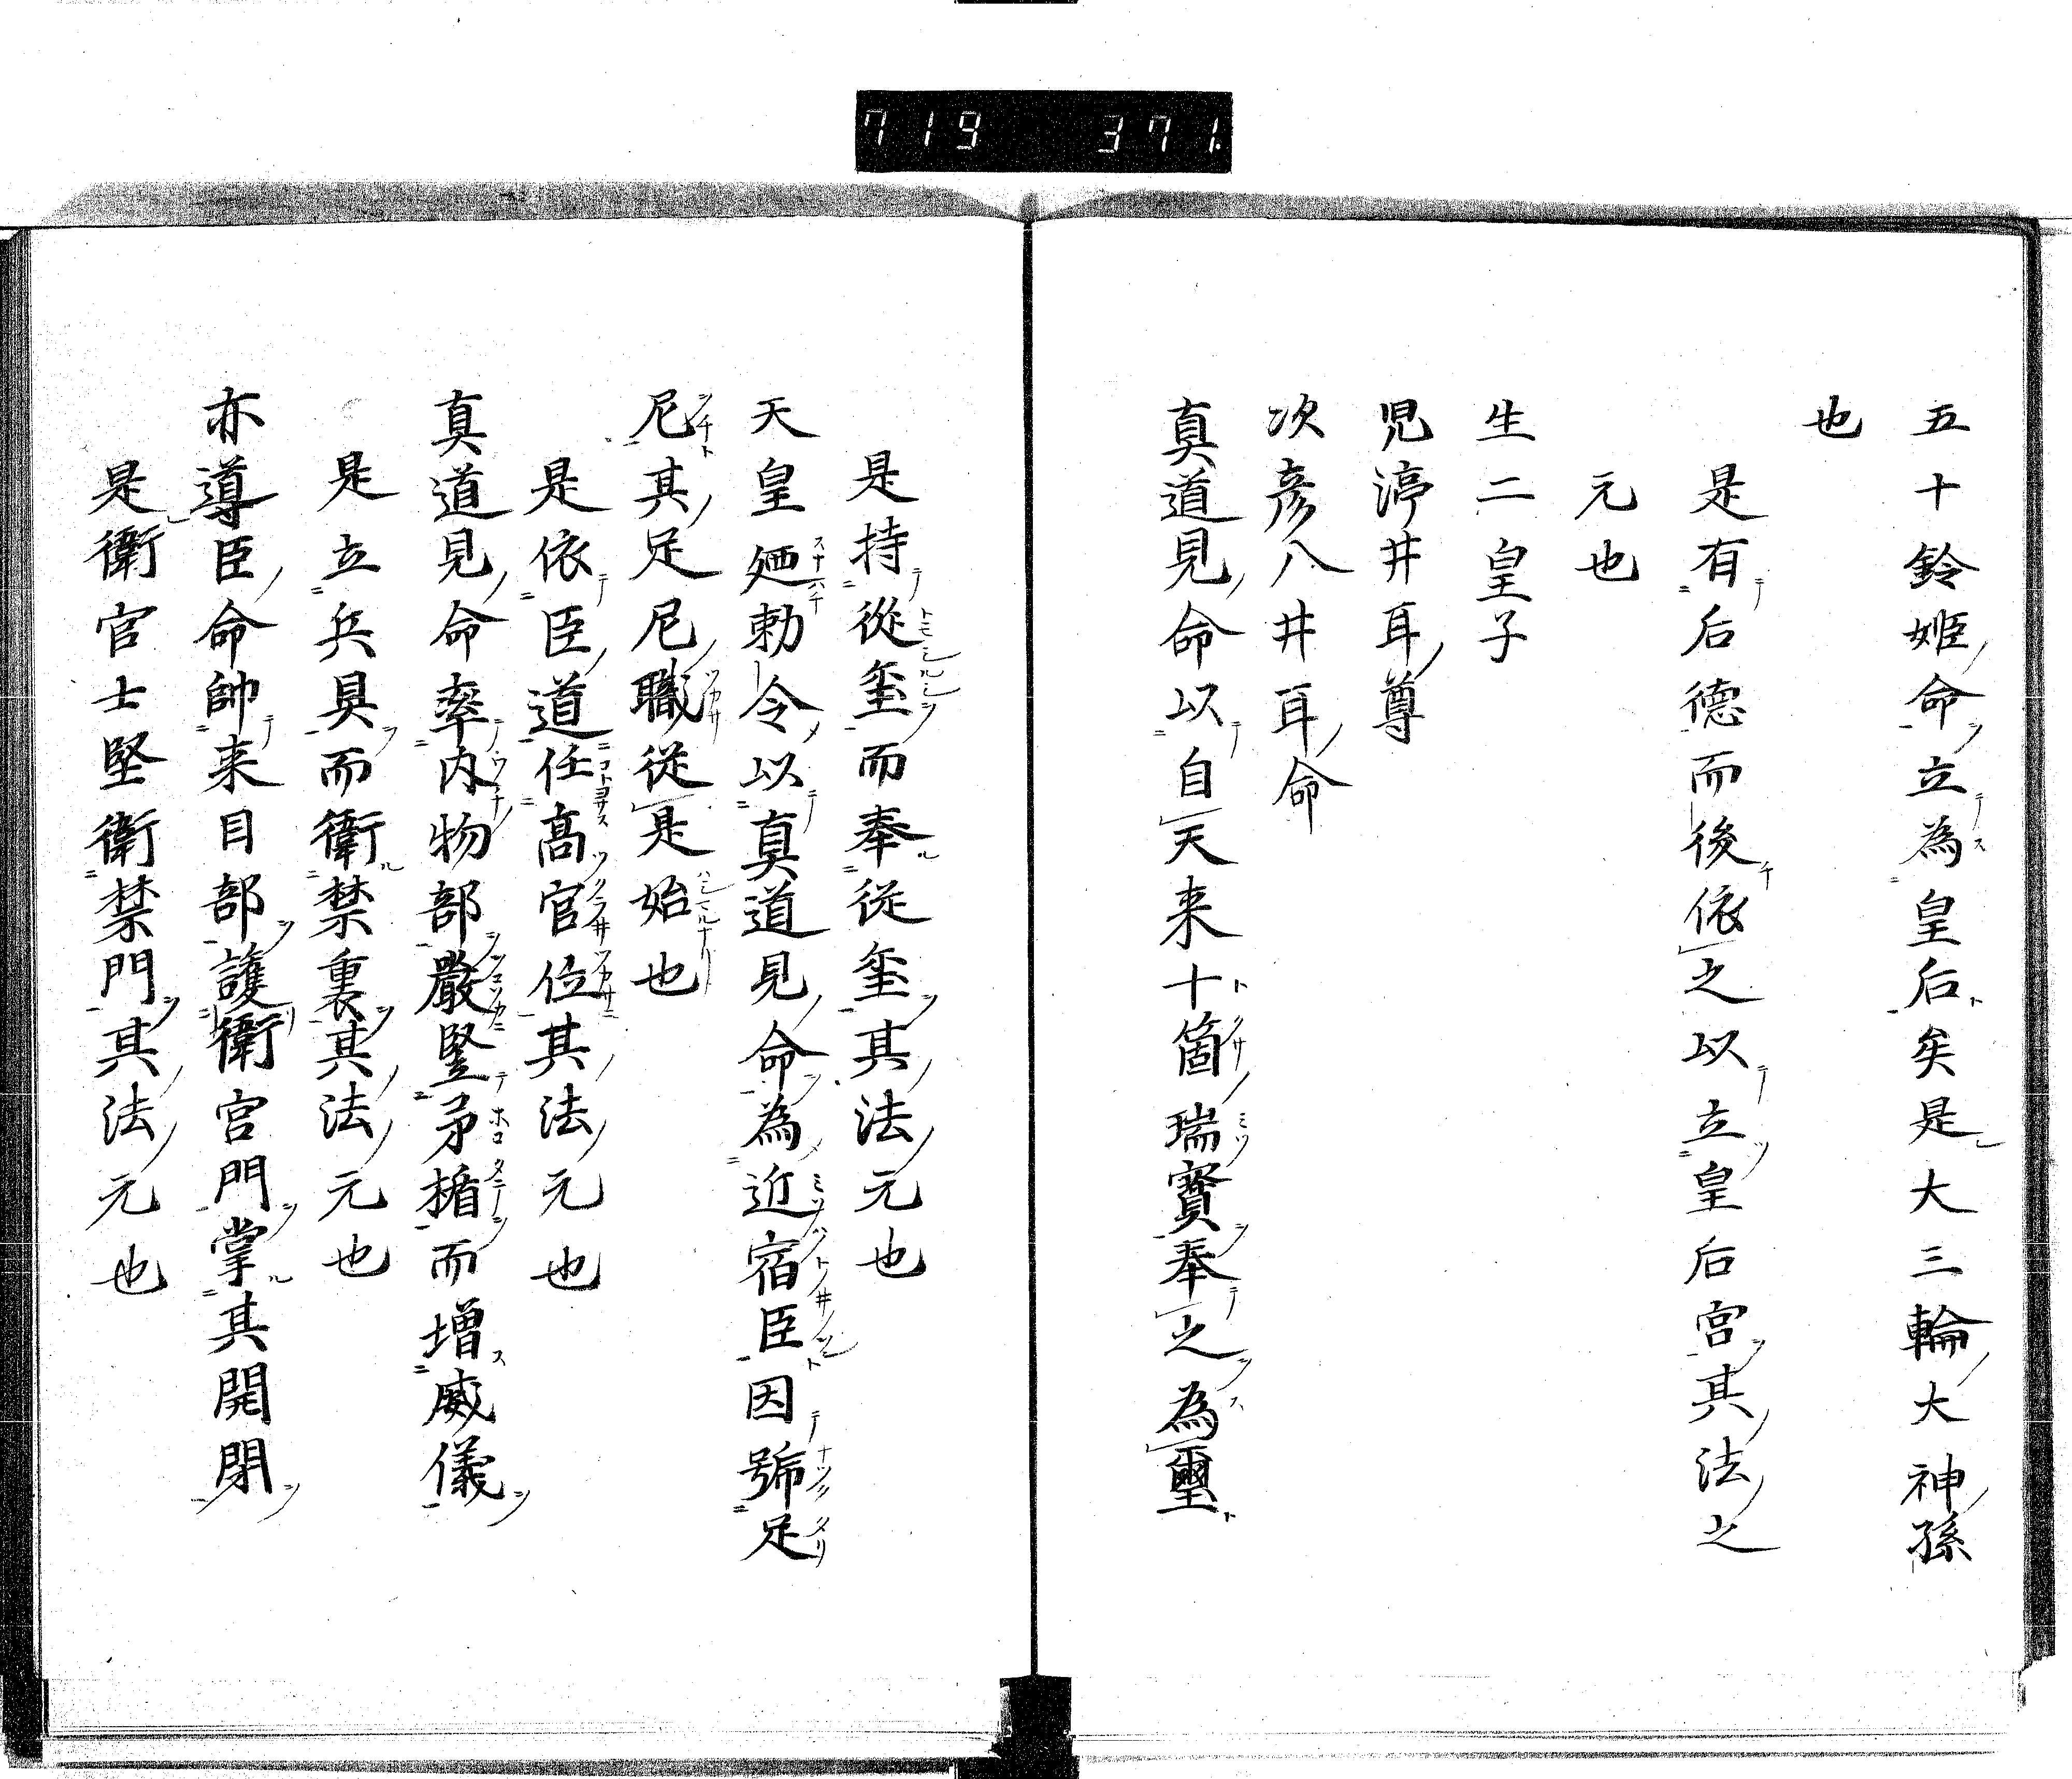 719 371.
五十鈴姫命立為皇后矣是大三輪大神孫
也
是有后徳而後依之以立皇后宮其法之
元也
生二皇子
児渟井耳尊
次彦八井耳命
真道見命以自天来十箇瑞寳奉之為璽
是持從璽而奉従璽其法元也
天皇廼勅令以真道見命為近宿臣因號足
尼其足尼職従是始也
是依臣道任髙官位其法元也
真道見命率内物部嚴竪矛楯而増威儀
是立兵具而衛禁裏其法元也
亦導臣命帥来目部護衛宮門掌其開閇
是衛官士堅衛禁門其法元也